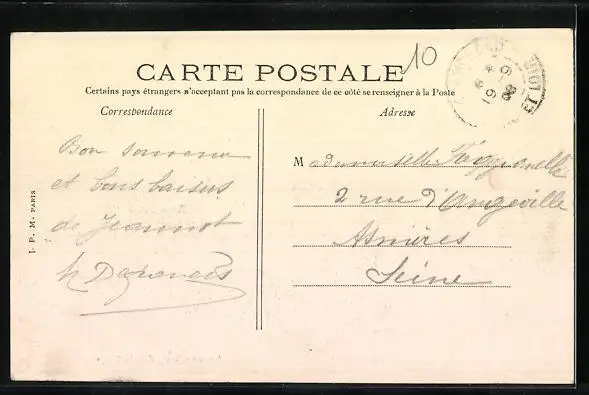 10
CARTE POSTALE
Certains pays étrangers n'acceptant pas la correspondance de ce côté se renseigner à la Poste
Correspondance
Adresse
Bon souvenir
et bons baisers
de Jeannot
Mademoiselle
2 rue d'
Asnières
Seine
I. P. M. PARIS